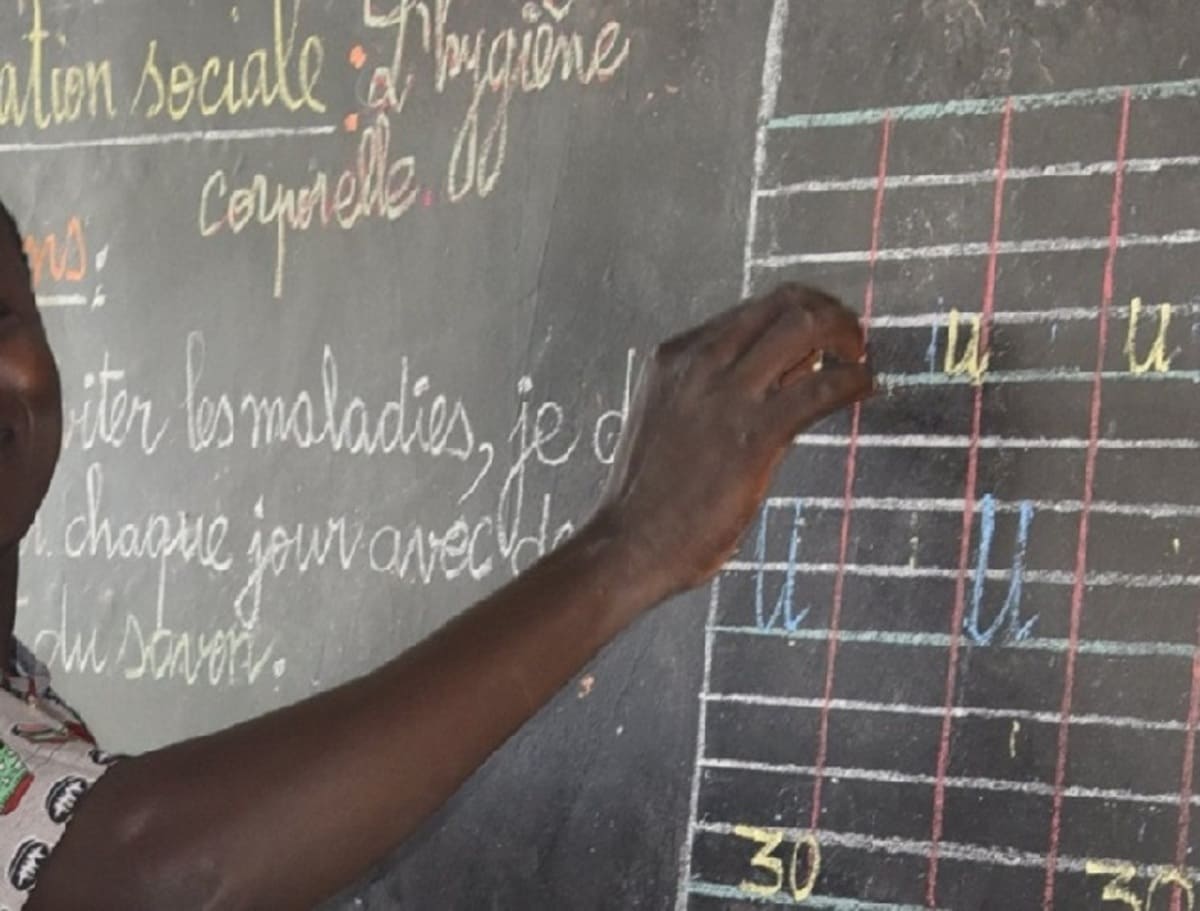 ation sociale : L'hygiène
corporelle.
ns :
viter les maladies, je d
chaque jour avec de
du savon.
u u
u u
30 30